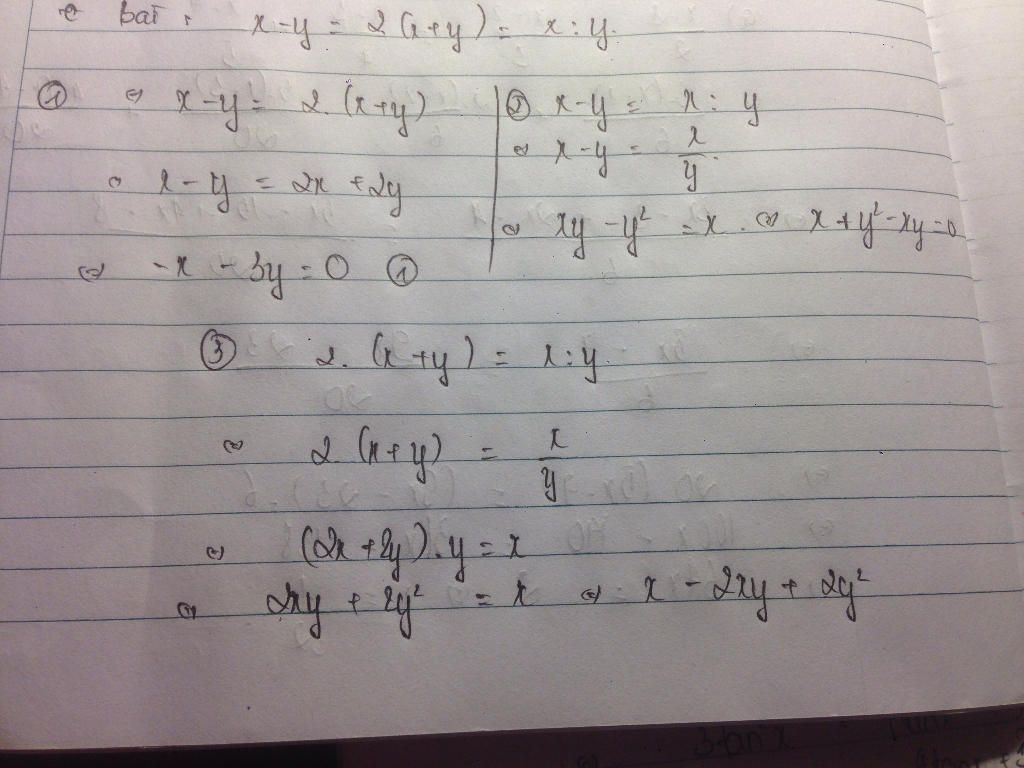 ⇔ Bài : x - y = 2 (x+y) = x : y.
① ⇔ x - y = 2. (x+y)
⇔ x - y = 2x + 2y
⇔ -x - 3y = 0 ①
② x - y = x : y
⇔ x - y = x/y.
⇔ xy - y² = x. ⇔ x + y² - xy = 0
③ 2. (x+y) = x : y.
⇔ 2 (x+y) = x/y
⇔ (2x + 2y). y = x
⇔ 2xy + 2y² = x ⇔ x - 2xy + 2y²